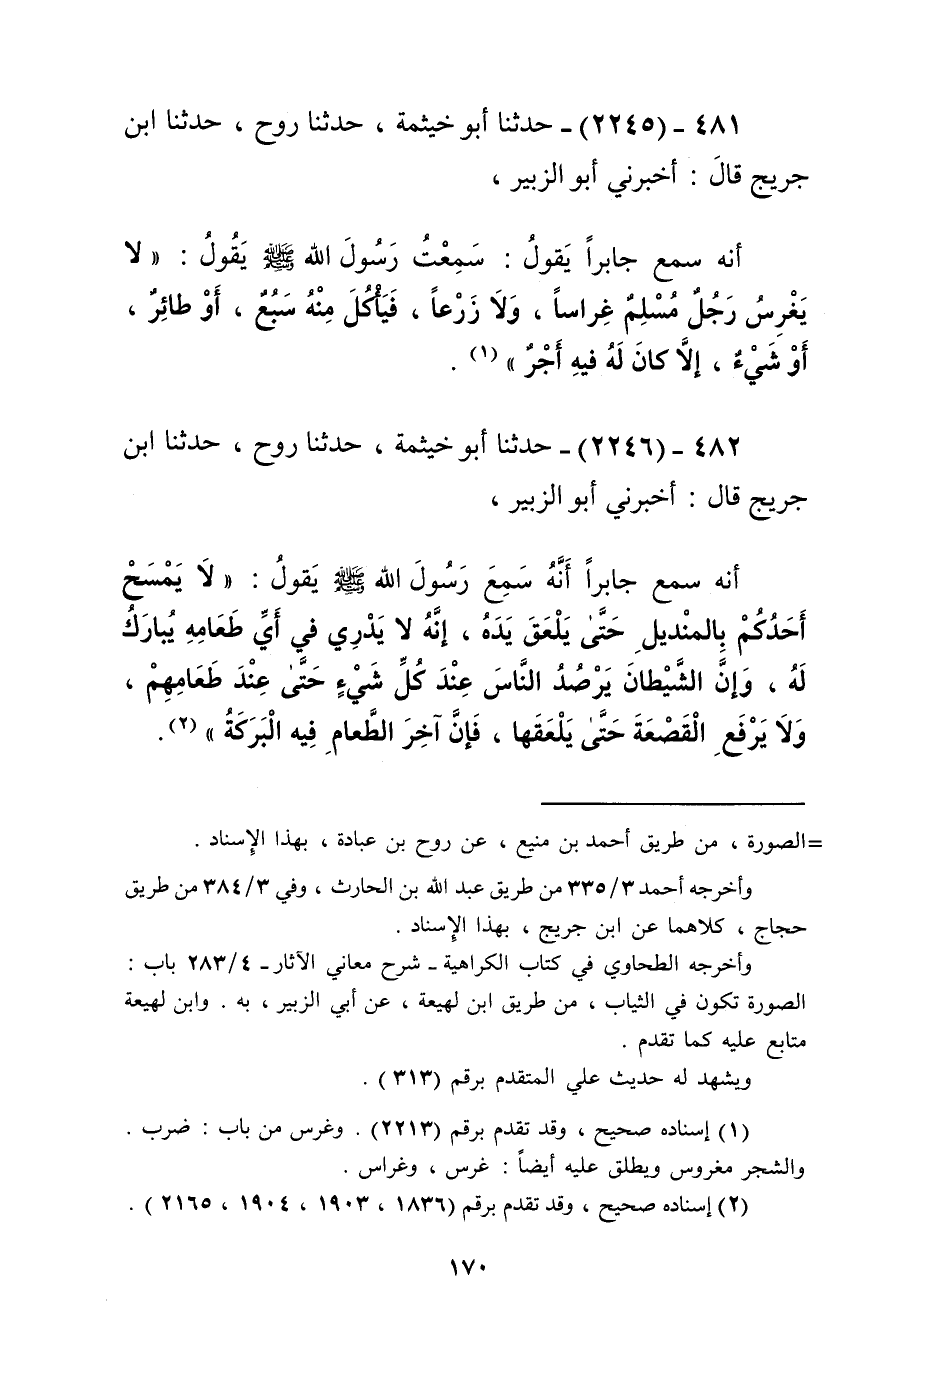 ٤٨١ ـ (٢٢٤٥) ـ حدثنا أبو خيثمة ، حدثنا روح ، حدثنا ابن
جريج قالَ : أخبرني أبو الزبير ،
أنه سمع جابراً يَقولُ : سَمِعْتُ رَسُولَ الله ﷺ يَقُولُ : « لا
يَغْرِسُ رَجُلٌ مُسْلِمٌ غِراساً ، وَلَا زَرْعاً ، فَيَأْكُلَ مِنْهُ سَبُعٌ ، أَوْ طائِرٌ ،
أَوْ شَيْءٌ ، إلَّا كانَ لَهُ فيهِ أَجْرٌ » (١) .
٤٨٢ ـ (٢٢٤٦) ـ حدثنا أبو خيثمة ، حدثنا روح ، حدثنا ابن
جريج قال : أخبرني أبو الزبير ،
أنه سمع جابراً أَنَّهُ سَمِعَ رَسُولَ الله ﷺ يَقولُ : « لَا يَمْسَحْ
أَحَدُكُمْ بِالمنْديلِ حَتَّىٰ يَلْعَقَ يَدَهُ ، إنَّهُ لا يَدْرِي في أَيِّ طَعَامِهِ يُبارَكُ
لَهُ ، وَإنَّ الشَّيْطانَ يَرْصُدُ النَّاسَ عِنْدَ كُلِّ شَيْءٍ حَتَّىٰ عِنْدَ طَعَامِهِمْ ،
وَلَا يَرْفَعِ الْقَصْعَةَ حَتَّىٰ يَلْعَقَها ، فَإنَّ آخِرَ الطَّعامِ فِيه الْبَرَكَةُ » (٢) .
=الصورة ، من طريق أحمد بن منيع ، عن روح بن عبادة ، بهذا الإسناد .
وأخرجه أحمد ٣/ ٣٣٥ من طريق عبد الله بن الحارث ، وفي ٣/ ٣٨٤ من طريق
حجاج ، كلاهما عن ابن جريج ، بهذا الإسناد .
وأخرجه الطحاوي في كتاب الكراهية ـ شرح معاني الآثار ـ ٤/ ٢٨٣ باب :
الصورة تكون في الثياب ، من طريق ابن لهيعة ، عن أبي الزبير ، به . وابن لهيعة
متابع عليه كما تقدم .
ويشهد له حديث علي المتقدم برقم (٣١٣) .
(١) إسناده صحيح ، وقد تقدم برقم (٢٢١٣) . وغرس من باب : ضرب .
والشجر مغروس ويطلق عليه أيضاً : غرس ، وغراس .
(٢) إسناده صحيح ، وقد تقدم برقم (١٨٣٦ ، ١٩٠٣ ، ١٩٠٤ ، ٢١٦٥ ) .
١٧٠